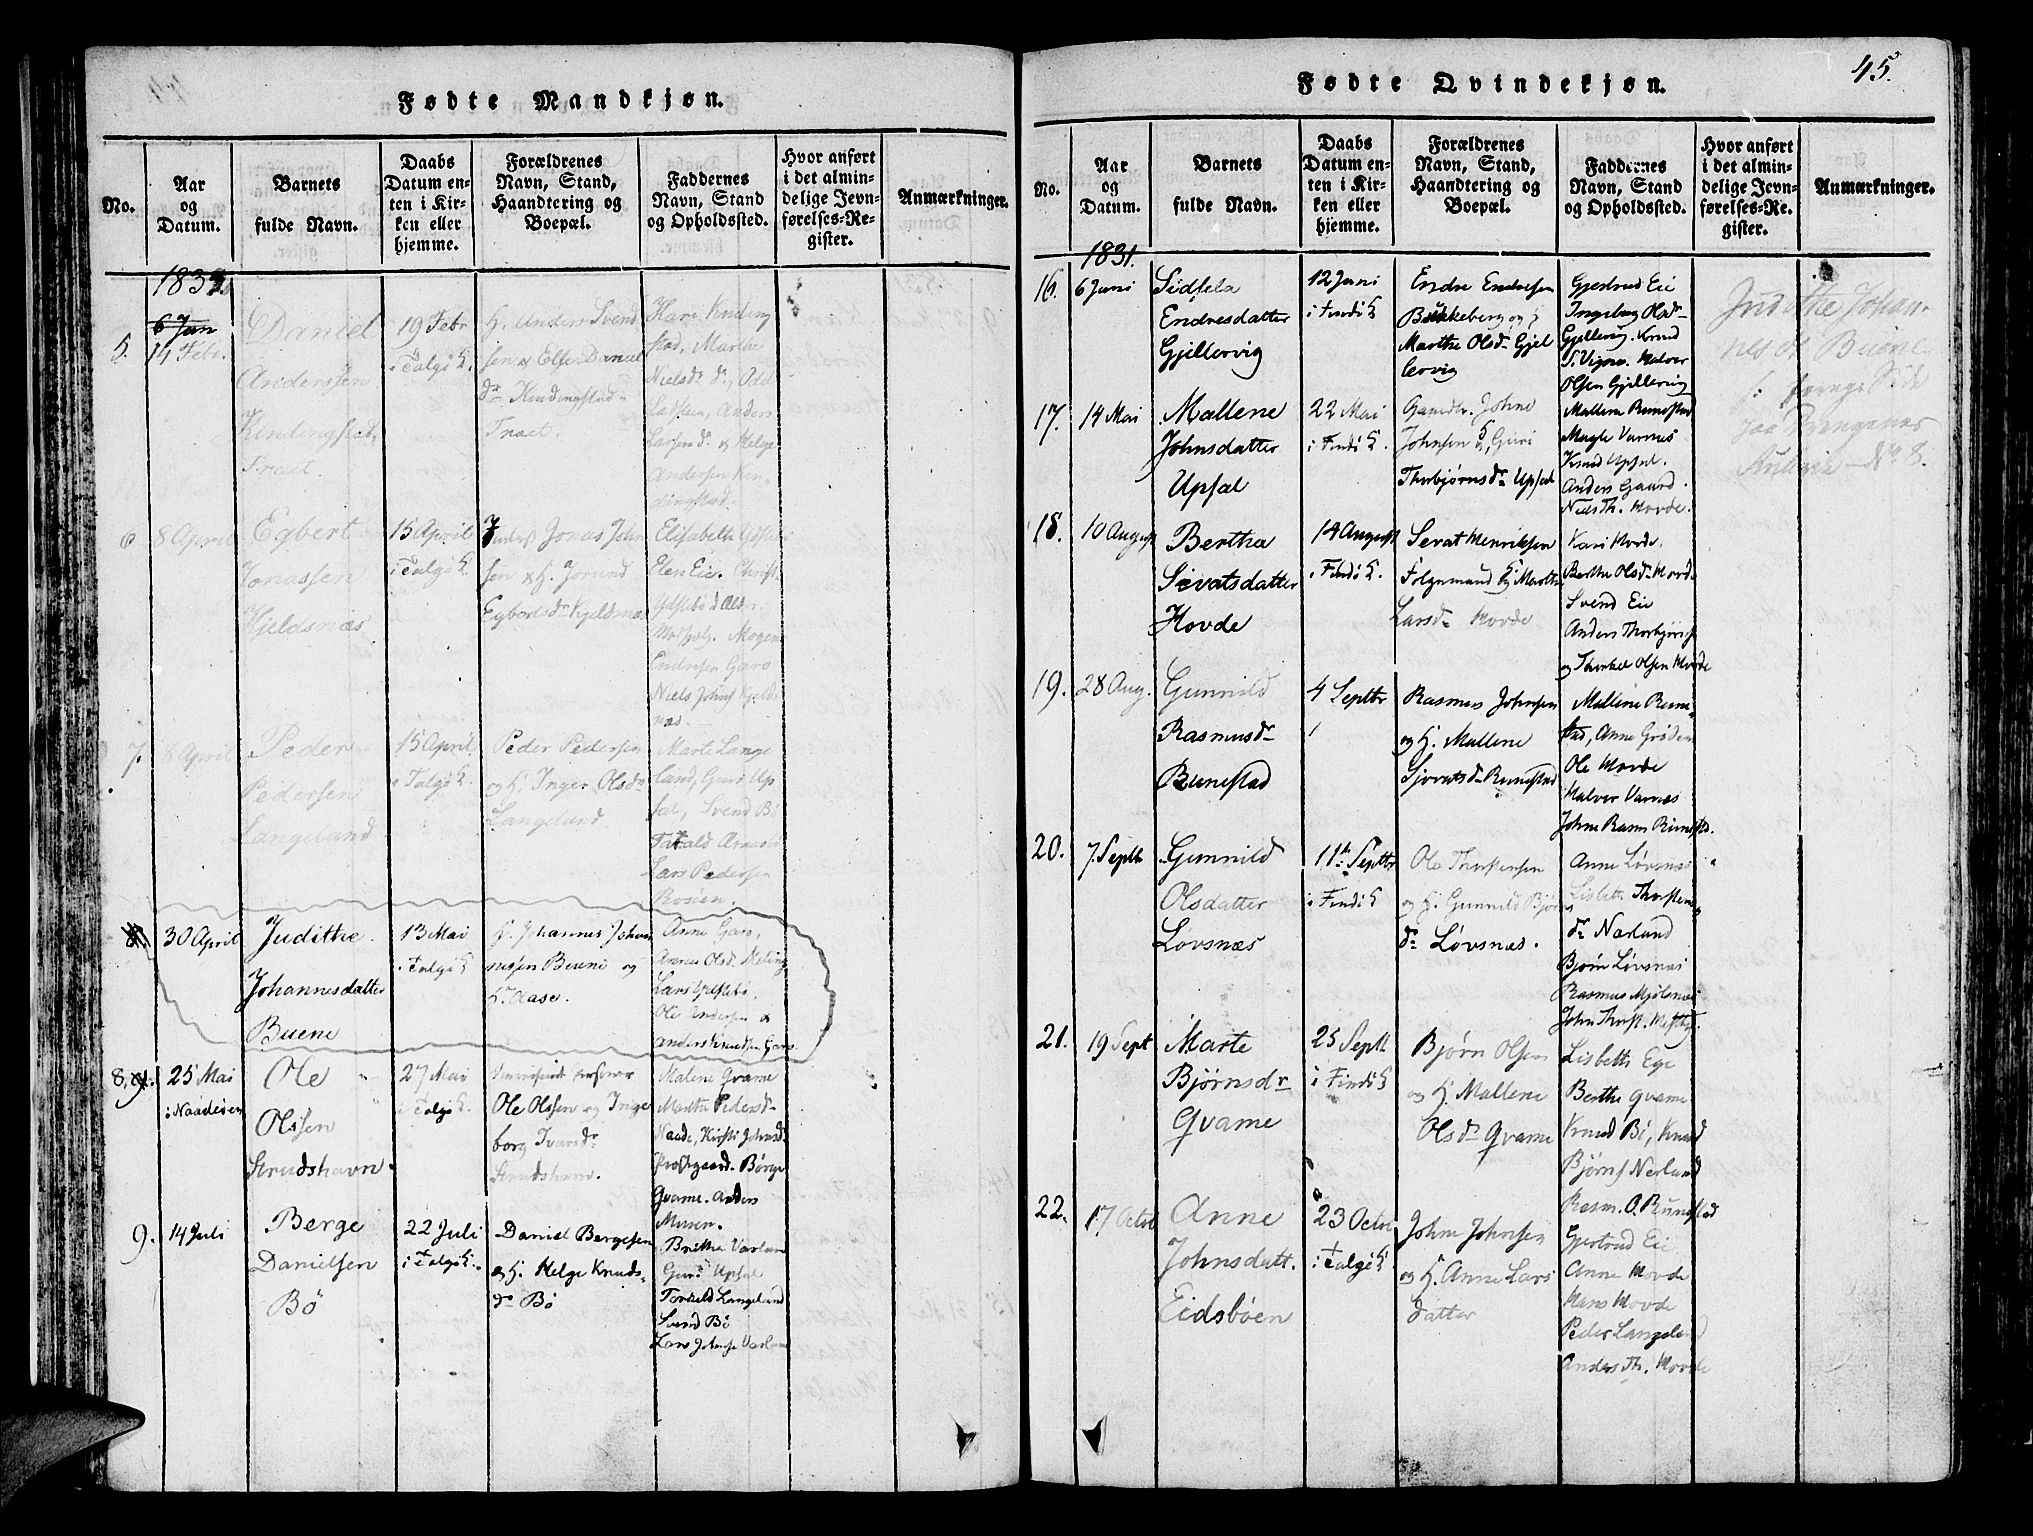 45.
Fødte Mandkjøn.
No.
Aar
og
Datum.
Barnets
fulde Navn.
Daabs
Datum en-
ten i Kir-
ken eller
hjemme.
Forældrenes
Navn, Stand,
Haandtering og
Boepæl.
Faddernes
Navn, Stand
og Opholdssted.
Hvor anført
i det almin-
delige Jevn-
førelses-Re-
gister.
Anmærkninger.
5.
6 Jan
14 Febr.
Daniel
Anderssen
Kindingstad,
Træet.
19 Febr
i Talgö K.
H. Anders Svend
sen & Else Daniel
dr Kindingstad-
Træet.
Kari Kinding
stad, Marthe
Nielsdr do, Odd
Ladsen, Anders
Larsen do & Helge
Andersen Kin-
dingstad.
6
8 April
Egbert
Jonassen
Kjeldsnæs
15 April
i Talgö K.
Jonas John
sen & H. Jorund
Egbertsdr Kjeldsnæs
Elisabeth
Elen Eie. Christ.
Mogens
Endresen Garo
Niels Johns Kjelds
næs.
7.
8 April
Peder
Pedersen
Langeland
15 April
i Talgö K.
Peder Pedersen
og H. Inger Olsdr
Langeland
Marte Lange
land, Guri Up
sal, Svend Bö
Lars Pedersen
Rosöen.
30 April
Judithe
Johannesdatter
Buene
13 Mai
i Talgö K
H. Johannes Johan
nessen Buene og
H. Aase.
Anne Garo,
Anne Olsd. Meling
Lars Ydstebö,
Ole Andersen &
Anders Knudsen Garo.
8, 9.
25 Mai
i Naadeöen
Ole
Olssen
Strudshavn
27 Mai
i Talgö K.
Ole Olssen og Inge
borg Ivarsdr
Strudshavn.
Malene Qvame
Marthe Pedersd.
Naade, Kirsti Johnsd.
Præstegaard. Börge
Qvame. Anders
Musen.
9.
14 Juli
Berge
Danielsen
Bö
22 Juli
i Talgö K.
Daniel Bergesen
og H. Helge Knuds-
dr Bö
Brithe Varland
Guri Upsal
Torkeld Langeland
Svend Bö
Lars Johnse Varland
Fødte Qvindekjøn.
No.
Aar
og
Datum.
Barnets
fulde Navn.
Daabs
Datum en-
ten i Kir-
ken eller
hjemme.
Forældrenes
Navn, Stand,
Haandtering og
Boepæl.
Faddernes
Navn, Stand
og Opholdssted.
Hvor anført
i det almin-
delige Jevn-
førelses-Re-
gister.
Anmærkninger.
1831.
16.
6 Juni
Sidsela
Endresdatter
Gjillervig
12 Juni
i Findö K
Endre Endresen
Bukkeberg og
Marthe Olsdr Gjel
lervig
Gjertrud Eie
Ingeborg Olsdr
Gjellervig. Knud
S. Vigen. Halvor
Olsen Gjillervig
Judithe Johan-
nesdr Buene
Side
No 8.
17.
14 Mai
Mallene
Johnsdatter
Upsal
22 Mai
i Findö K.
Gaardbr. Johne
Johnsen & Guri
Thorbjørnsdr Upsal
Mallene Runestad
Magle Varnes
Knud Upsal.
Anders Gaard.
Niels Th. Hovde.
18.
10 August
Bertha
Sevatsdatter
Hovde
14 August
i Findö K.
Sevat Henriksen
Folgemand og Marthe
Larsdr Hovde
Kari Hovde.
Berthe Olsdr Hovd.
Svend Eie
Anders Thorbjörns
og Thorkel Olsen Hovde
19.
28 Aug.
Gunnild
Rasmusdr
Runestad
4 Septbr
Rasmus Johnsen
og H. Mallene
Sjovatsdr Runestad
Mallene Rune-
stad, Anne Gröden
Ole Hovde
Halvor Varnæs
Johne Rasm Runestd.
20.
7. Septb
Gunnild
Olsdatter
Lövsnæs
11te Septbr
i Findö K.
Ole Thorstensen
og H. Gunnild Björns
dr Lövsnæs.
Anne Lövsnæs
Lisbeth Thorstens
dr Nærland
Bjørn Lövsnæs
Rasmus Mjölsnæs
John Thorst.
21.
19 Sept
Marte
Bjørnsdr
Qvame
25 Septb
i Findö K
Bjørn Olsen
og H. Mallene
Olsdr Qvame
Lisbeth Ege
Berthe Qvame
Knud Bö, Knud
Björns Nerland
Rasm. O. Runestad
22.
17 Octob
Anne
Johnsdatt.
Eidsböen
23 Octbr
i Talgö K
Johne Johnsen
og H. Anne Lars
datter
Gjertrud Eie
Anne Hovde
Hans Hovde
Peder Langeland
Anders Th. Hovde